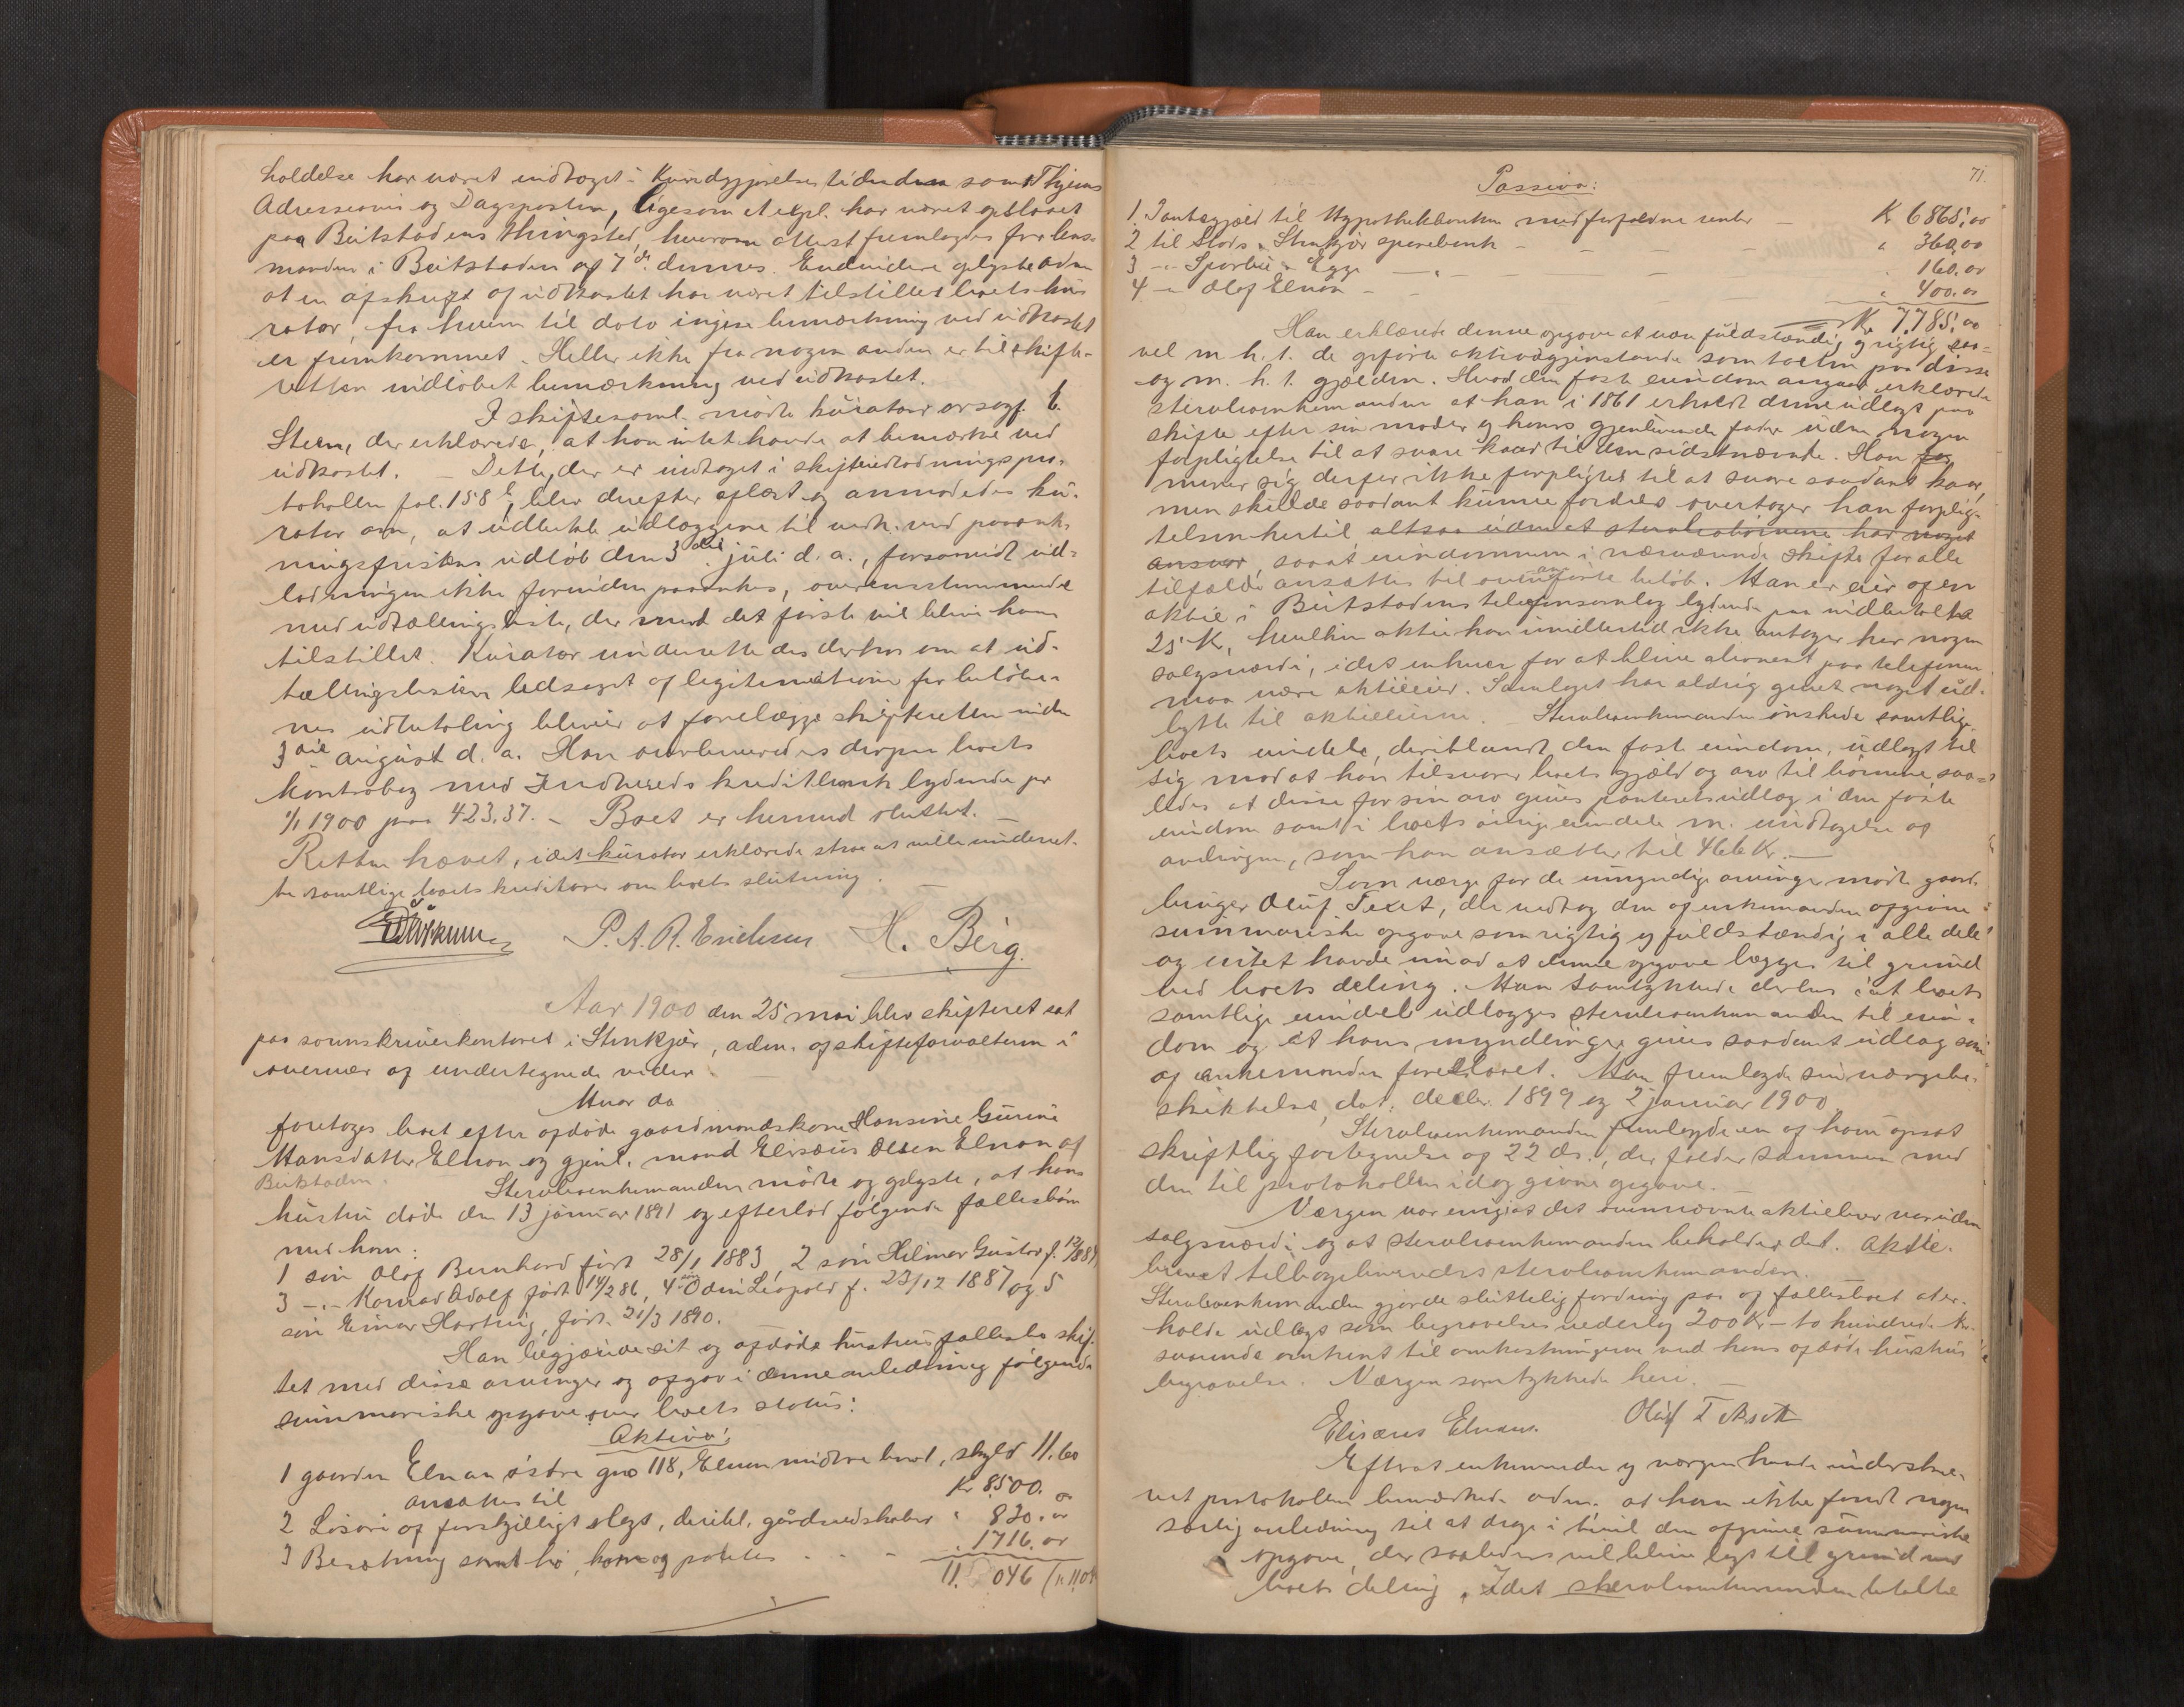 holdelse har været indtaget i Kundgjørelsestidenden samt Thjems
Adresseavis og Dagsposten, ligesom et expl. har været opslaaet
paa Beitstadens thingsted, hvorom attest fremlagdes fra lens-
manden i Beitstaden af 7 ds. dennes. Endvidere oplyste adm
at en afskrift af udkastet har været tilstillet boets ku-
rator, fra hvem til dato ingen bemærkning ved udkastet
er fremkommet. Heller ikke fra nogen anden er til skifte-
retten indløbet bemærkning ved udkastet.
I skiftesaml. mødte kurator ovsagf. C.
Steen, der erklærede, at han intet havde at bemærke ved
udkastet. – Dette, der er indtaget i skifteudlodningspro-
tokollen fol. 158 b, blev derefter oplæst og anmodedes ku-
rator om, at udbetale udlæggene til vedk. ved paaank-
ningsfristens udløb den 3die juli d. a., forsaavidt ud-
lodningen ikke forinden paaankes, overensstemmende
med udtællingsliste, der med det første vil blive ham
tilstillet. Kurator underrettedes derhos om at ud-
tællingslisten ledsaget af legitimationer for beløbe-
nes udbetaling bliver at forelægge skifteretten inden
3die august d. a. Han overleveredes derpaa boets
kontrabog med Indherreds kreditbank lydende pr
1/1 1900 paa 423.37. – Boet er hermed sluttet. –
Retten hævet, idet kurator erklærede strax at ville underret-
te samtlige boets kreditorer om boets slutning. –
P. A. R. Erichsen H. Berg.
Aar 1900 den 25 mai blev skifteret sat
paa sorenskriverkontoret i Stenkjær, adm. af skifteforvalteren i
overvær af undertegnede vidner.
Hvor da
foretoges boet efter afdøde gaardmandskone Hansine Gurine
Hansdatter Elnan og gjenl. mand Elisæus Olsen Elnan af
Beitstaden. Stervboenkemanden mødte og oplyste, at hans
hustru døde den 13 januar 1891 og efterlod følgende fællesbørn
med ham:
1 søn Olaf Bernhard født 28/1 1883, 2 søn Hilmar Gustav f. 12/8 1884
3 -"- Konrad Adolf født 14/2 86, 4 søn Odin Leopold f. 23/12 1887 og 5
søn Einar Hartvig, født 21/3 1890.
Han begjærede sit og afdøde hustrues fællesbo skif-
tet med disse arvinger og opgav i denne anledning følgende
summariske opgave over boets status:
Aktiva:
1 gaarden Elnan østre gno 118, Elnan midtre bno 1, skyld 11.60
ansættes til Kr 8500. 00
2 Løsøre af forskjelligt slags, deribl. gårdsredskaber " 830. 00
3 Besætning samt hø, korn og poteter . . - " 1716. 00
11. 046
71.
Passiva:
1. Pantegjæld til Hypothekbanken med forfaldne renter – K 6865,00
2 til Stods & Stenkjær sparebank - - - " 360,00
3 -"- Sparbu & Egge - - - " 160.00
4 -"- Olaf Elnan - - " 400.00
Kr 7.785,00
Han erklærede denne opgave at være fuldstændig og rigtig saa-
vel m. h. t. de opførte aktivagjenstande som taxten paa disse
og m. h. t. gjælden. Hvad den faste eiendom angaar erklærede
stervboenkemanden at han i 1861 erholdt denne udlagt paa
skifte efter sin moder og hans gjenlevende fader uden nogen
forpligtelse til at svare kaar til den sidstnævnte. Han for
mener sig derfor ikke forpligtet til at svare saadant kaar,
men skulde saadant kunne fordres overtager han forplig-
telsen hertil altsaa uden at stervbobørnene har noget
ansvar, saa at eiendommen i nærværende skifte for alle
tilfælde ansættes til ovenanførte beløb. Han er eier af en
aktie i Beitstadens telefonsamlag lydende paa indbetalte
25 K, hvilken aktie han imidlertid ikke antager har nogen
salgsværdi, idet enhver for at blive abonnent paa telefonen
maa være aktieeier. Samlaget har aldrig givet noget ud-
bytte til aktieeierne. Stervboenkemanden ønskede samtlige
boets eiendele, deriblandt den faste eiendom, udlagt til
sig mod at han tilsvarer boets gjæld og arv til børnene saa-
ledes at disse for sin arv gives panteretsudlæg i den faste
eiendom samt i boets øvrige eiendele m. undtagelse af
avlingen, som han ansætter til 466 K. –
Som værge for de umyndige arvinger mødte gaard-
bruger Oluf Texet, der vedtog den af enkemanden opgivne
summariske opgave som rigtig og fuldstændig i alle dele
og intet havde imod at denne opgave lægges til grund
ved boets deling. Han samtykkede derhos i at boets
samtlige eiendele udlægges stervboenkemanden til eien-
dom og at hans myndlinger gives saadant udlæg som
af enkemanden foreslaaet. Han fremlagde sin værgebe-
skikkelse, dat. decbr. 1899 og 2 januar 1900.
Stervboenkemanden fremlagde en af ham opsat
skriftlig fortegnelse af 22 ds., der falder sammen med
den til protokollen idag givne opgave. –
Værgen var enig i at det ovennævnte aktiebrev var uden
salgsværdi og at stervboenkemanden beholder det. Aktie-
brevet tilbageleveredes stervboenkemanden.
Stervboenkemanden gjorde sluttelig fordring paa af fællesboet at er-
holde udlagt som begravelsesvederlag 200 Kr – to hundrede Kr.
svarende omtrent til omkostningerne ved hans afdøde hustrus
begravelse. Værgen samtykkede heri. –
Elisæus Elnan. Oluf Teksett
Efterat enkemanden og værgen havde underskre-
vet protokollen bemærkede adm. at han ikke fandt nogen
særlig anledning til at drage i tvivl den afgivne summariske
opgave, der saaledes vil blive lagt til grund ved
boets deling. Idet stervboenkemanden betalte